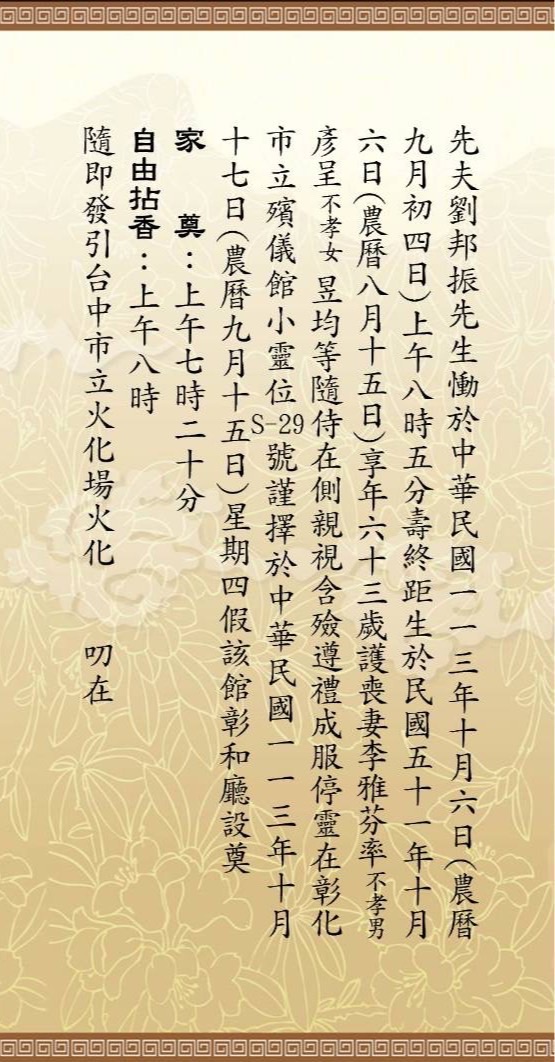 先夫劉邦振先生慟於中華民國一一三年十月六日(農曆
九月初四日)上午八時五分壽終距生於民國五十一年十月
六日(農曆八月十五日)享年六十三歲護喪妻李雅芬率不孝男
彥呈不孝女昱均等隨侍在側親視含殮遵禮成服停靈在彰化
市立殯儀館小靈位S-29號謹擇於中華民國一一三年十月
十七日(農曆九月十五日)星期四假該館彰和廳設奠
家　奠：上午七時二十分
自由拈香：上午八時
隨即發引台中市立火化場火化　叨在